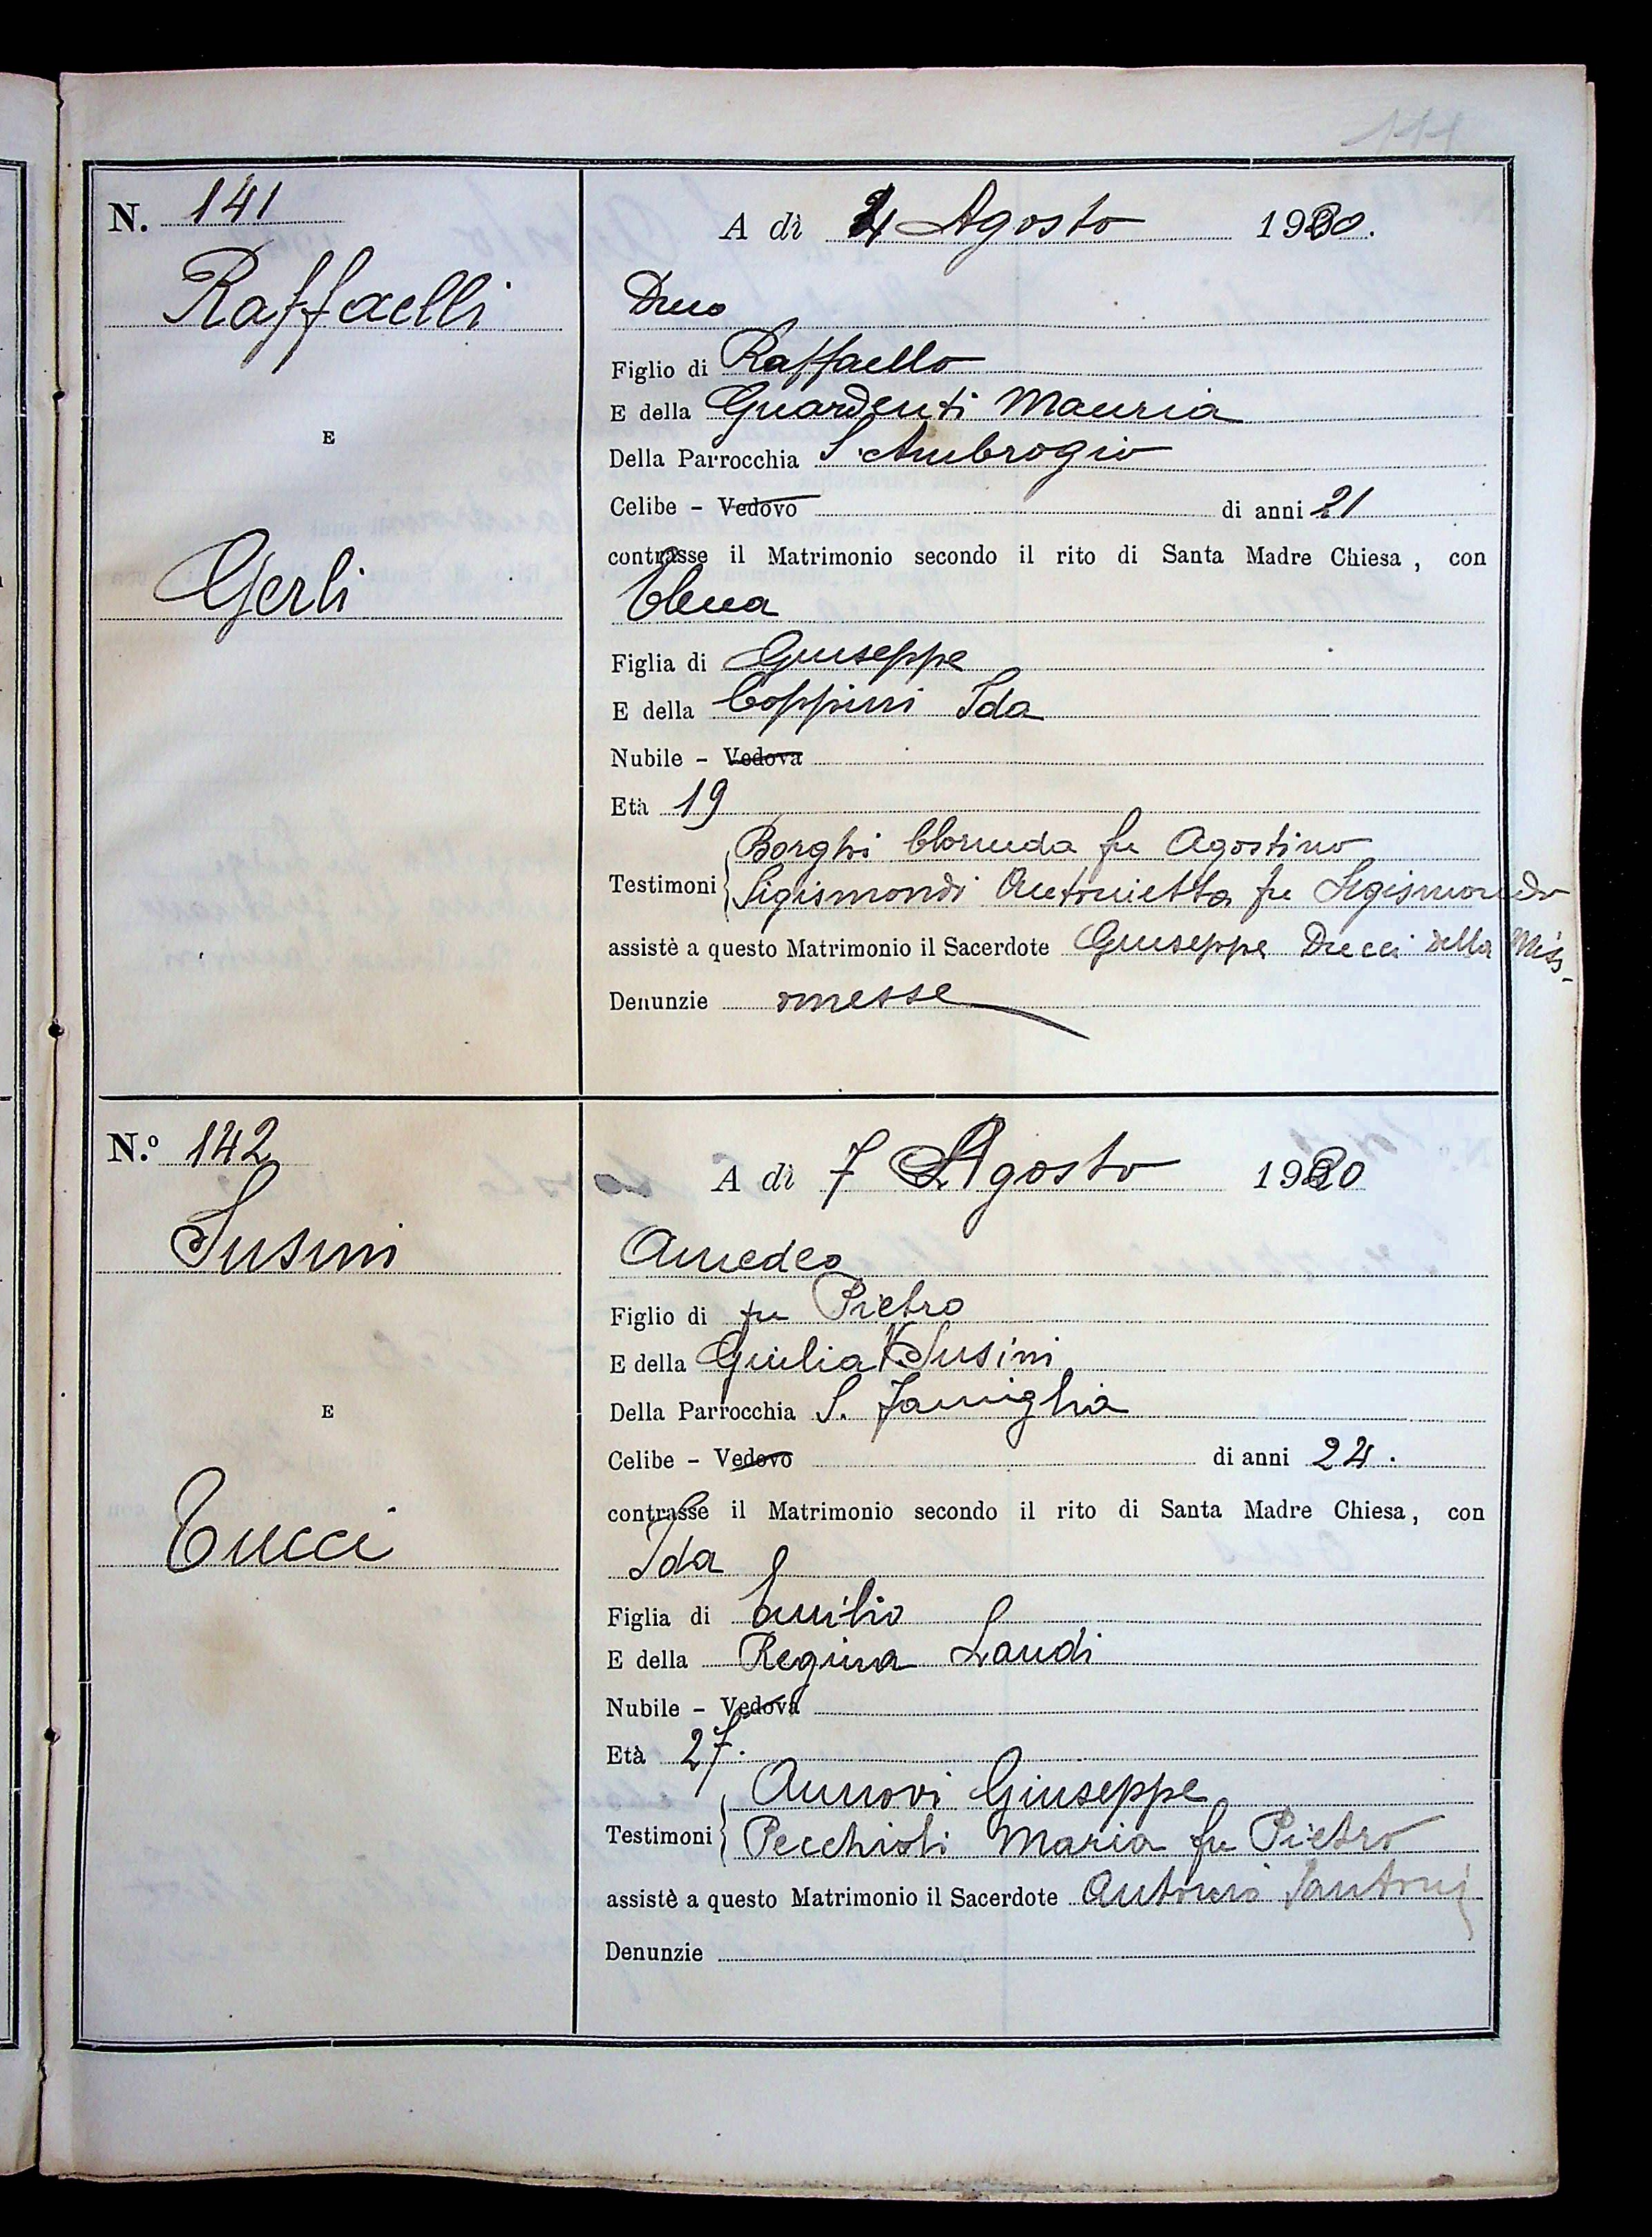 111
N. 141
Raffaelli
E
Gerli
A dì 4 Agosto 1920.
Dino
Figlio di Raffaello
E della Guardenti Mauria
Della Parrocchia S. Ambrogio
Celibe - Vedovo di anni 21
contrasse il Matrimonio secondo il rito di Santa Madre Chiesa, con
Elena
Figlia di Giuseppe
E della Coppini Ida
Nubile - Vedova
Età 19
Borghi Clorinda fu Agostino
Testimoni
Sigismondi Antonietta fu Sigismondo
assistè a questo Matrimonio il Sacerdote Giuseppe Ducci della Miss.
Denunzie omesse
N.º 142
Susini
E
Tucci
A dì 7 Agosto 1920
Amedeo
Figlio di fu Pietro
E della Giulia Susini
Della Parrocchia S. Famiglia
Celibe - Vedovo di anni 24.
contrasse il Matrimonio secondo il rito di Santa Madre Chiesa, con
Ida
Figlia di Emilio
E della Regina Landi
Nubile - Vedova
Età 27.
Giuseppe
Testimoni
Pecchioli Maria fu Pietro
assistè a questo Matrimonio il Sacerdote Antonio Santoni
Denunzie